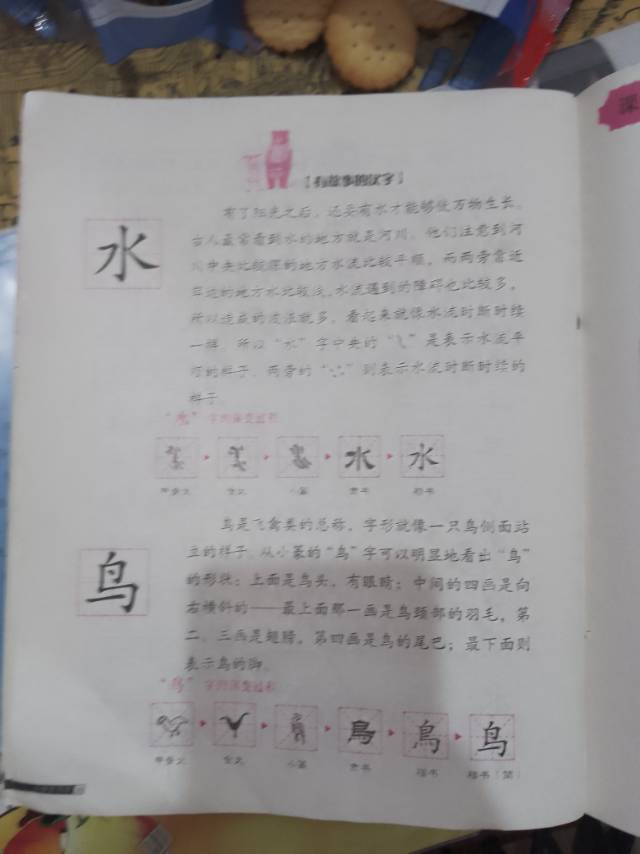 【有故事的汉字】
水
有了阳光之后，还要有水才能够使万物生长。
古人最常看到水的地方就是河川。他们注意到河
川中央比较深的地方水流比较平顺，而两旁靠近
岸边的地方水比较浅，水流遇到的障碍也比较多，
所以造成的波浪就多，看起来就像水流时断时续
一样。所以“水”字中央的“”是表示水流平
顺的样子，两旁的“”则表示水流时断时续的
样子。
“水”字的演变过程
水 水
甲骨文 金文 小篆 隶书 楷书
鸟
鸟是飞禽类的总称，字形就像一只鸟侧面站
立的样子。从小篆的“鸟”字可以明显地看出“鸟”
的形状：上面是鸟头，有眼睛；中间的四画是向
右横斜的——最上面那一画是鸟颈部的羽毛，第
二、三画是翅膀，第四画是鸟的尾巴；最下面则
表示鸟的脚。
“鸟”字的演变过程
鳥 鳥 鸟
甲骨文 金文 小篆 隶书 楷书 楷书（简）